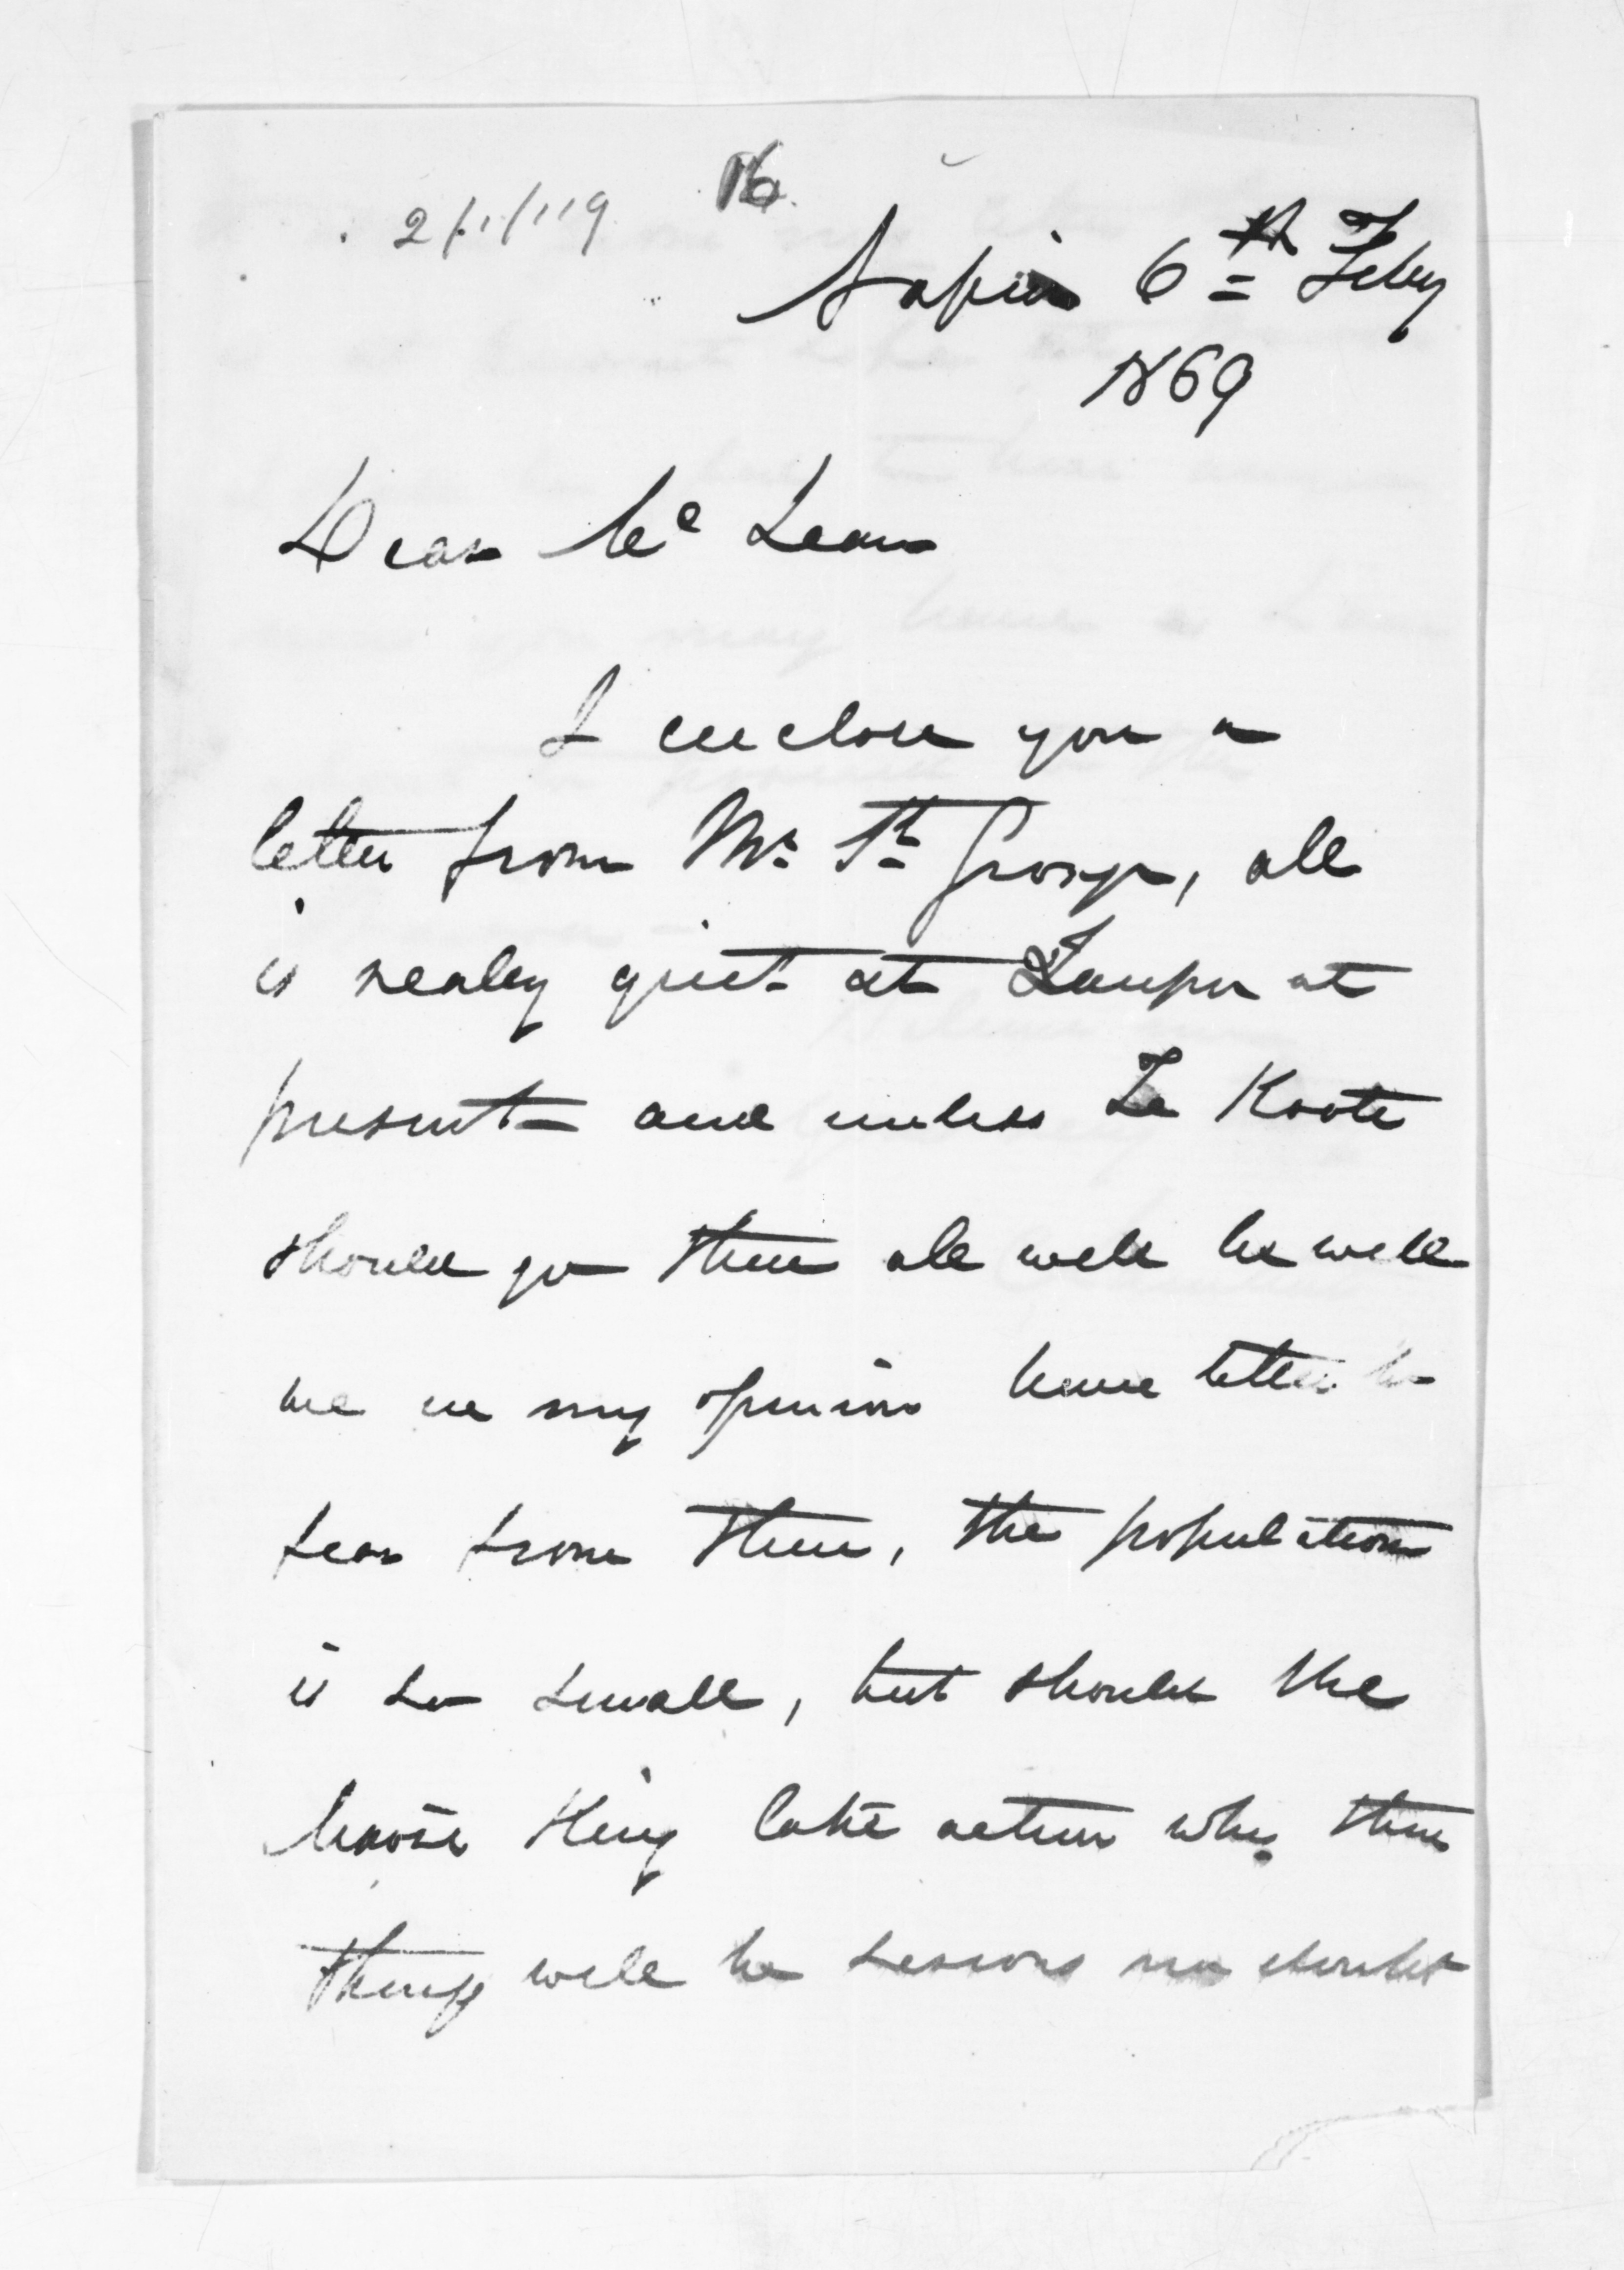 16
Napier 6th Feby
1869
Dear McLean
I enclose you a
letter from Mr St George, all
is really quiet at Taupo at
present and unless Te Kooti
should go there all well he will
we in my opinion have little to
fear from there, the population
is so small, but should the
Maori King take action why then
things will be serious no doubt